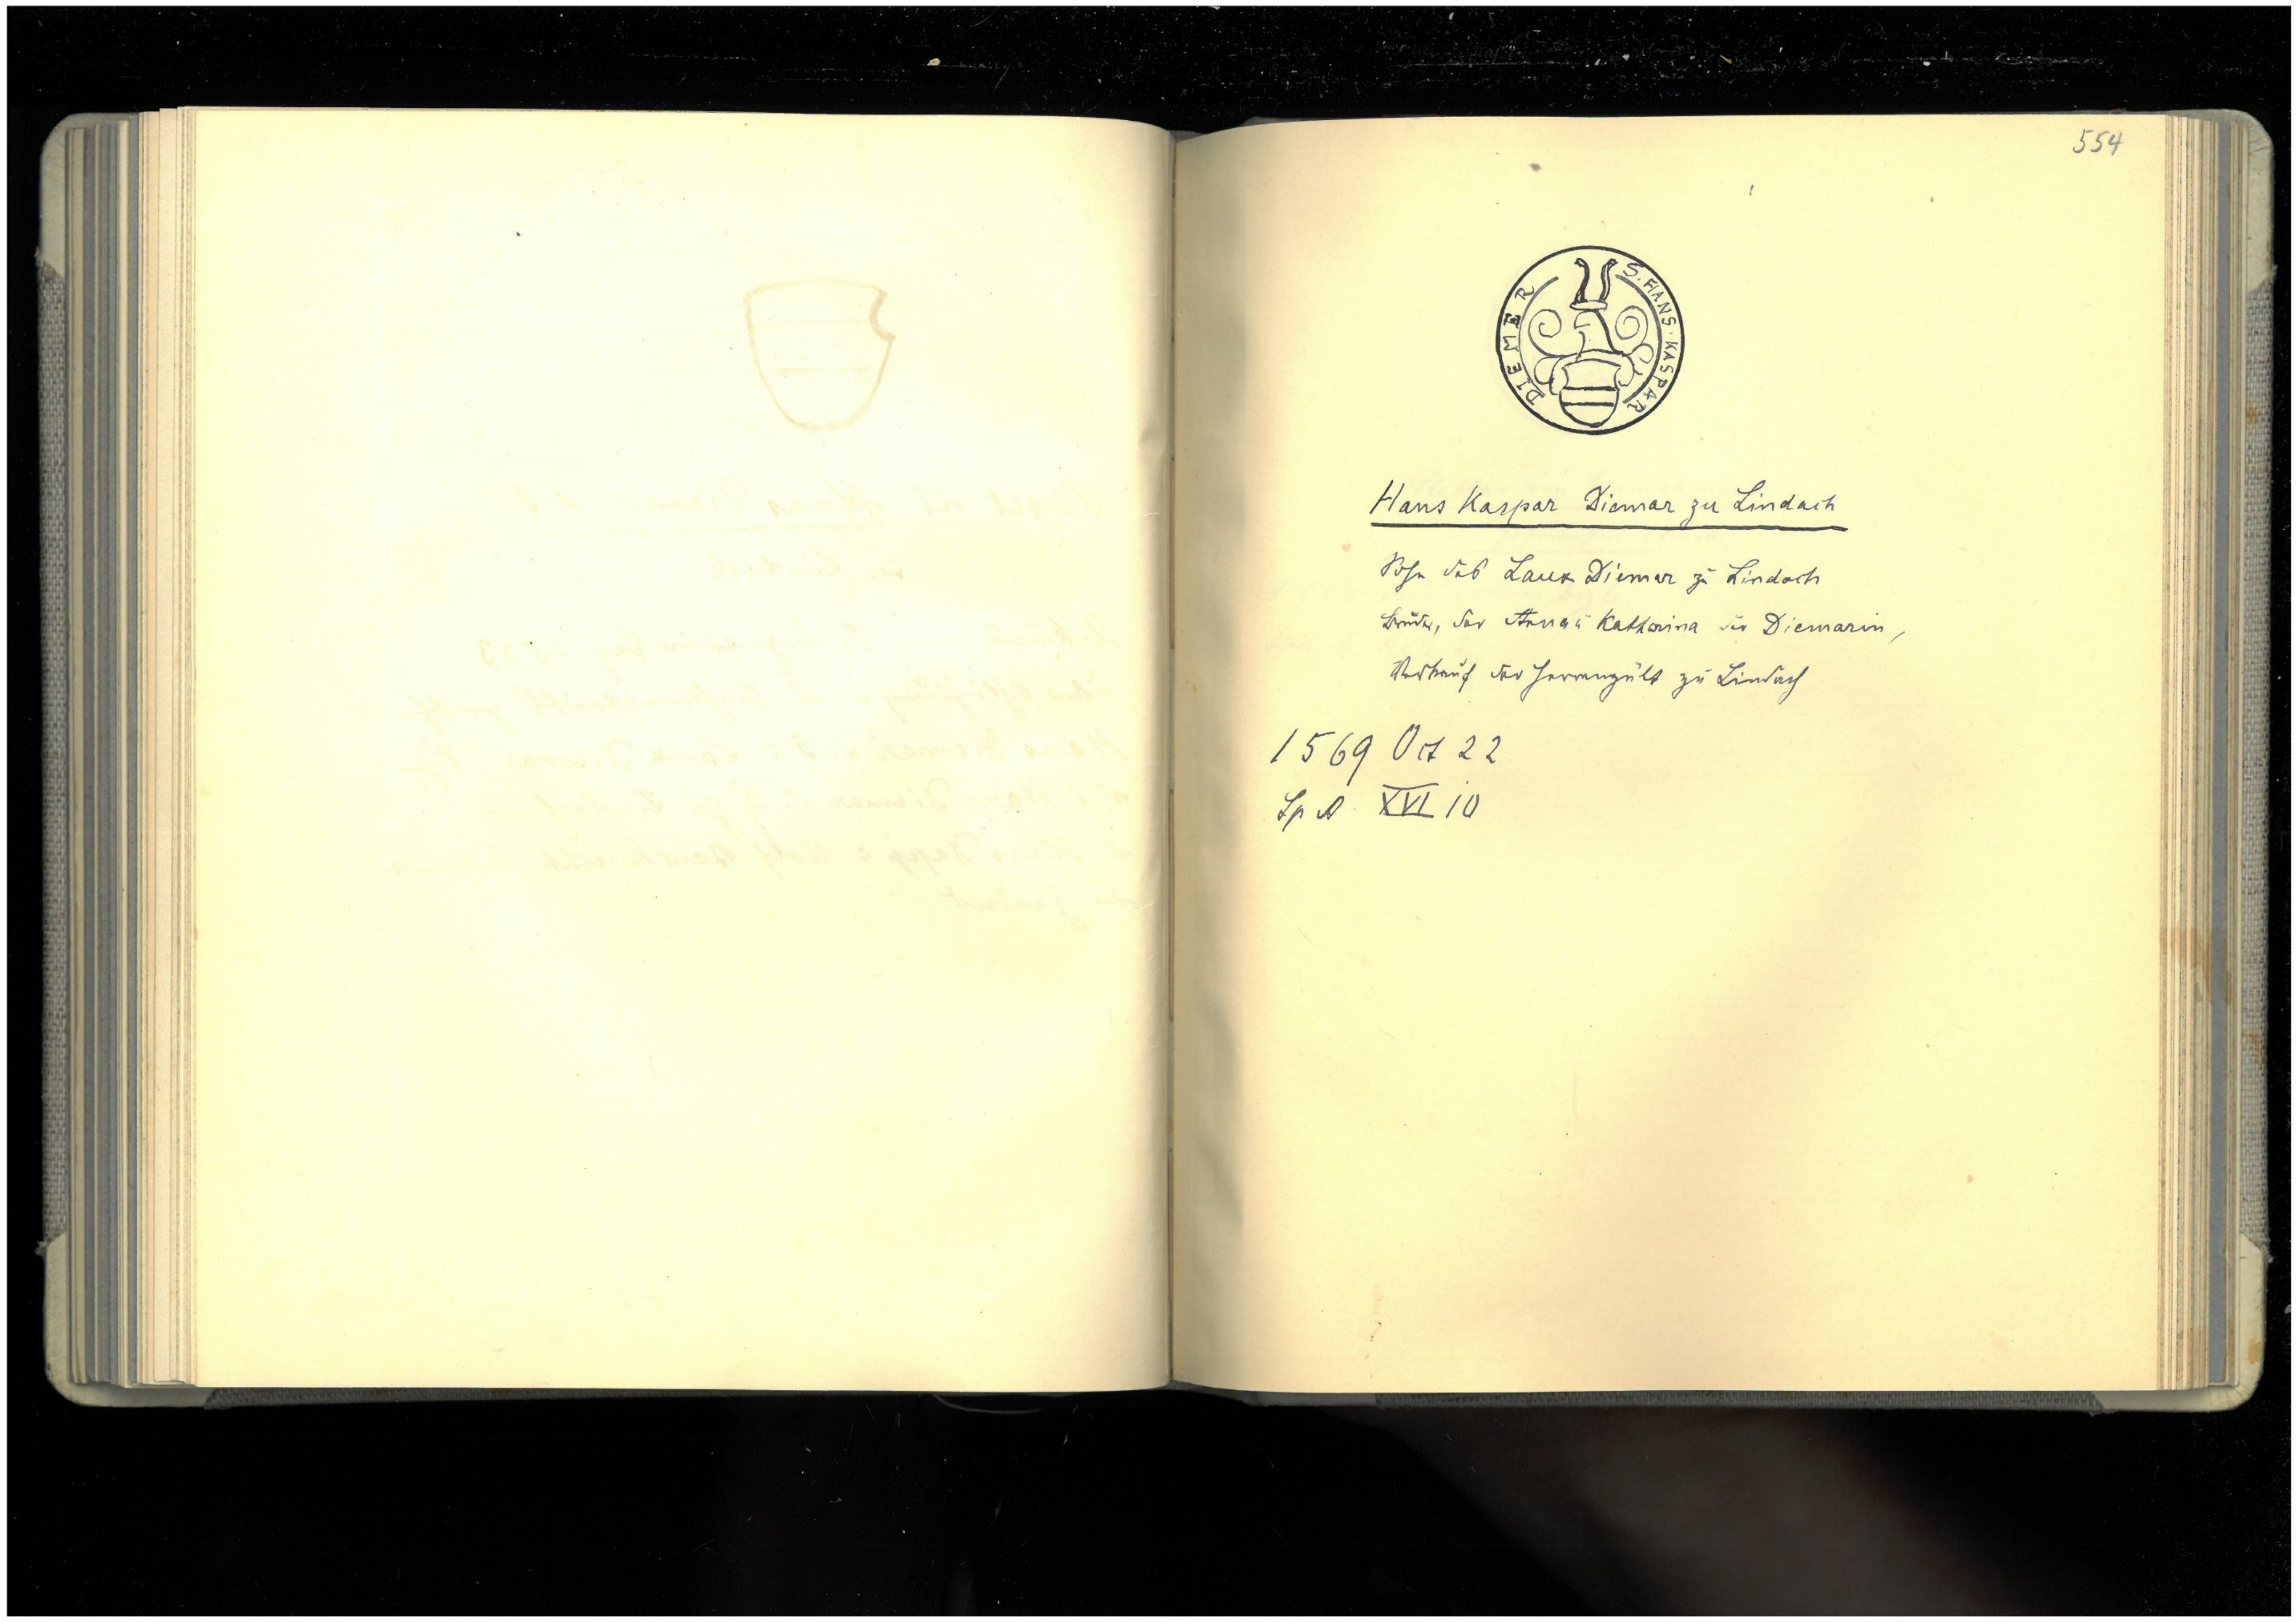 554
S. HANS · KASPAR
DIEMER
Hans Kaspar Diemar zu Lindach
Sohn des Laux Diemar zu Lindach
Bruder, der Anna u Katharina der Diemarin,
Verkauf der Herrengült zu Lindach
1569 Oct 22
Sp A. XVI 10